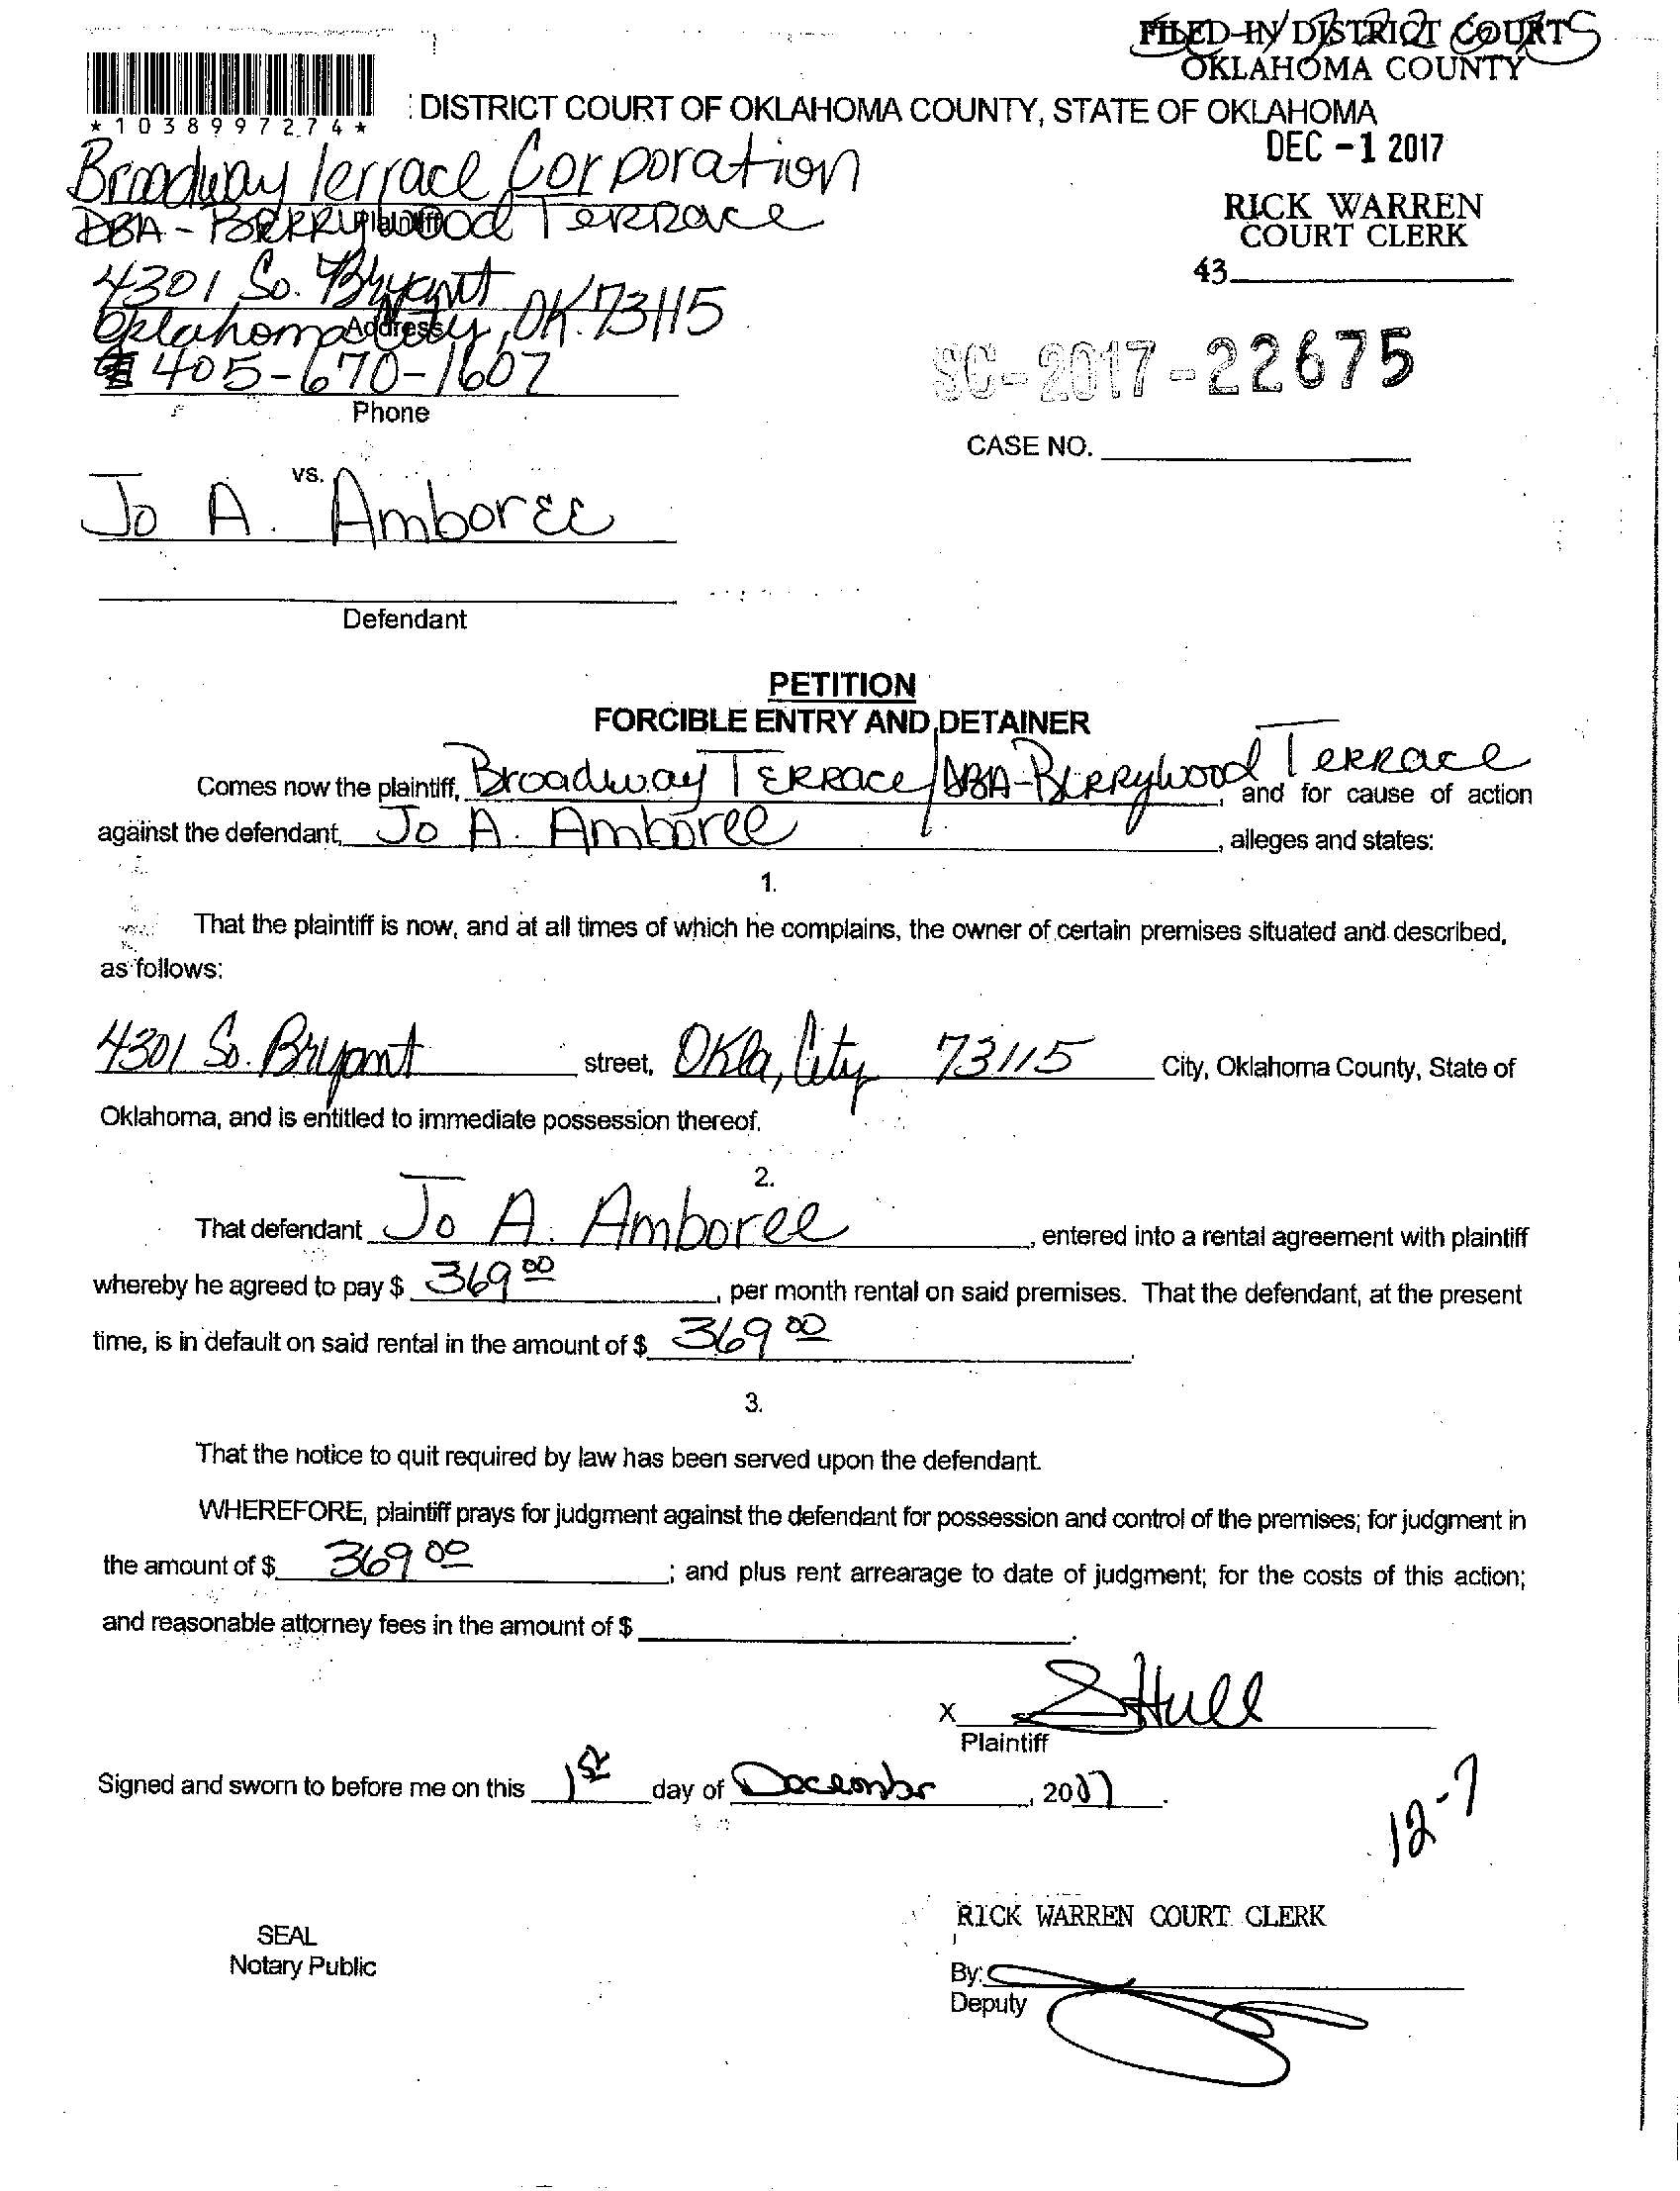 FILED IN DISTRICT COURT
OKLAHOMA COUNTY
*1038997274*
DISTRICT COURT OF OKLAHOMA COUNTY, STATE OF OKLAHOMA
DEC -1 2017
Broadway Terrace Corporation
DBA - BERRYwood TERRace
Plaintiff
RICK WARREN
COURT CLERK
43
4301 So. Bryant
Oklahoma City, OK. 73115
Address
405-670-1607
Phone
SC-2017-22675
CASE NO.
vs.
Jo A. Amboree
Defendant
PETITION
FORCIBLE ENTRY AND DETAINER
Comes now the plaintiff, Broadway TERRace/DBA-BERRywood TeRRace, and for cause of action
against the defendant, Jo A. Amboree, alleges and states:
1.
That the plaintiff is now, and at all times of which he complains, the owner of certain premises situated and described,
as follows:
4301 So. Bryant street, Okla, City 73115 City, Oklahoma County, State of
Oklahoma, and is entitled to immediate possession thereof.
2.
That defendant Jo A. Amboree, entered into a rental agreement with plaintiff
whereby he agreed to pay $ 369 00, per month rental on said premises. That the defendant, at the present
time, is in default on said rental in the amount of $ 369 00.
3.
That the notice to quit required by law has been served upon the defendant.
WHEREFORE, plaintiff prays for judgment against the defendant for possession and control of the premises; for judgment in
the amount of $ 369 00; and plus rent arrearage to date of judgment; for the costs of this action;
and reasonable attorney fees in the amount of $.
X SHull
Plaintiff
Signed and sworn to before me on this 1st day of December, 2017.
12-7
RICK WARREN COURT CLERK
SEAL
Notary Public
By:
Deputy